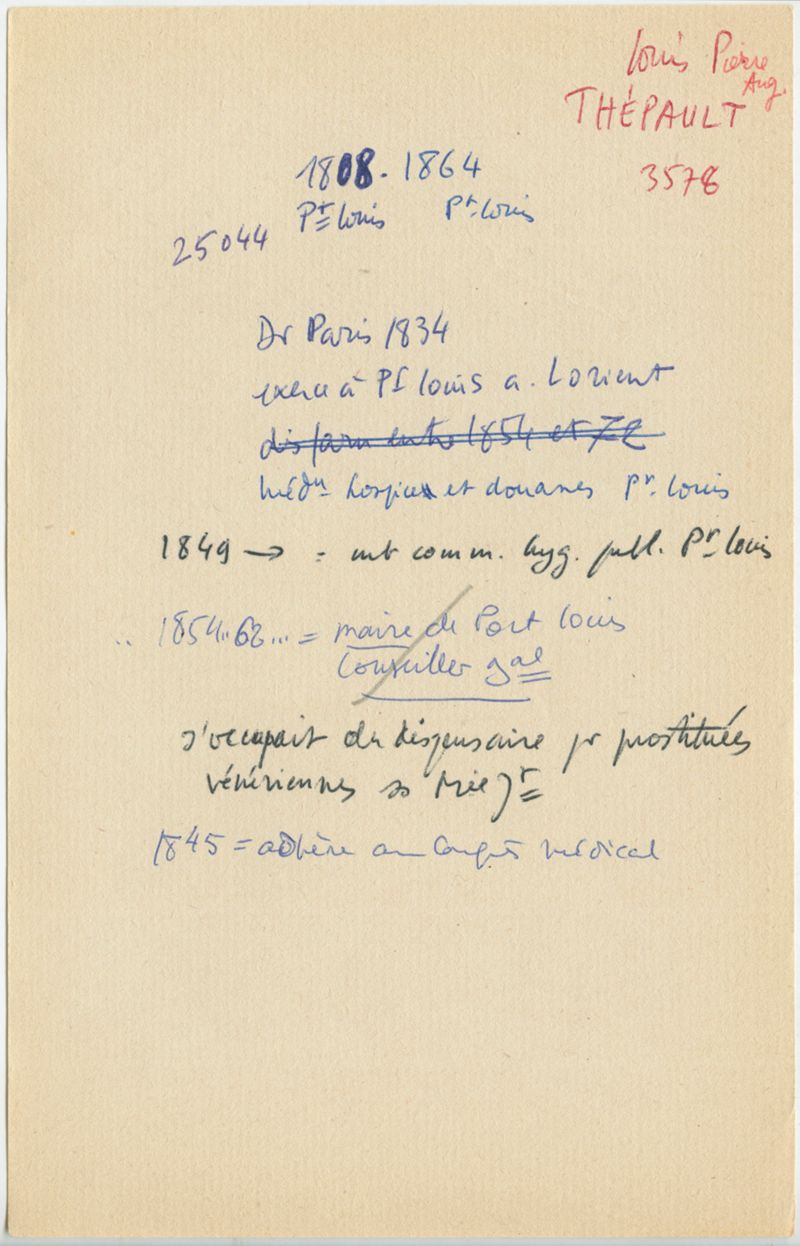 Louis Pierre
Aug.
THÉPAULT
3578
1808 - 1864
Pt Louis Pt. Louis
25044
Dr Paris 1834
exerce à Pt Louis a. Lorient
disparu entre 1854 et 72
médn hospice et douanes Pt. Louis
1849 → = mb comm. hyg. publ. Pt Louis
.. 1854..62... = maire de Port Louis
Conseiller gal
s'occupait du dispensaire pr prostituées
vénériennes
1845 = adhère au Congrès médical